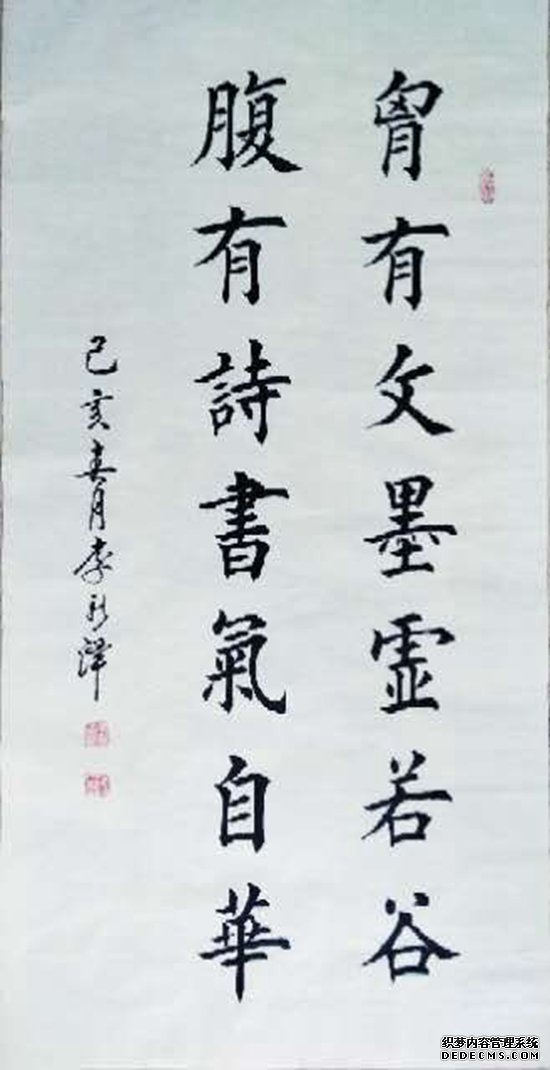 胷有文墨虛若谷
腹有詩書氣自華
己亥春月李新澤
织梦内容管理系统
DEDECMS.COM